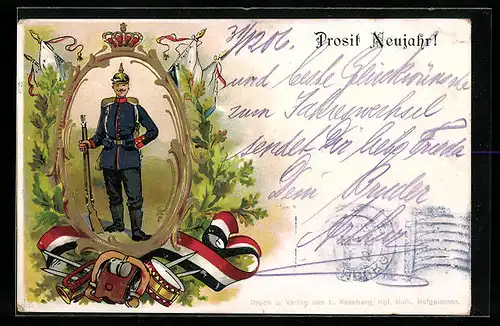 31/12 06.
Prosit Neujahr!
und beste Glückwünsche
zum Jahreswechsel
sendet Dir, liebe Frieda
Dein Bruder
Druck u. Verlag von L. Keseberg, Kgl. Hofl., Hofgeismar.